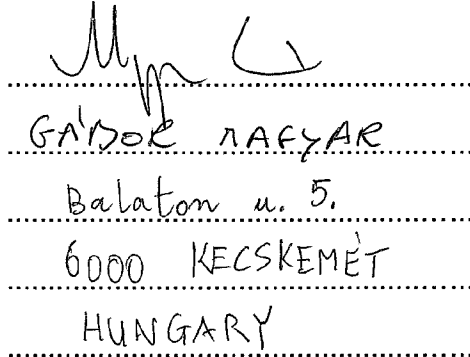 GÁBOR MAGYAR
Balaton u. 5.
6000 KECSKEMÉT
HUNGARY